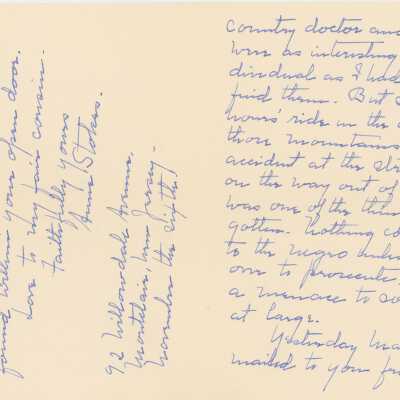 found within your open door.
Love to my fair cousin.
Faithfully yours
Anne Stokes.
92 Willowdale Avenue,
Montclair, New Jersey –
November the sixth,
country doctor and
were as interesting
dividual as I had
find them. But
hours ride in the
those mountains
accident at the
on the way out of
was one of the thin
gotten. Nothing co
to the negro
over to prosecute
a menace to so
at large.
Yesterday Ma
mailed to you